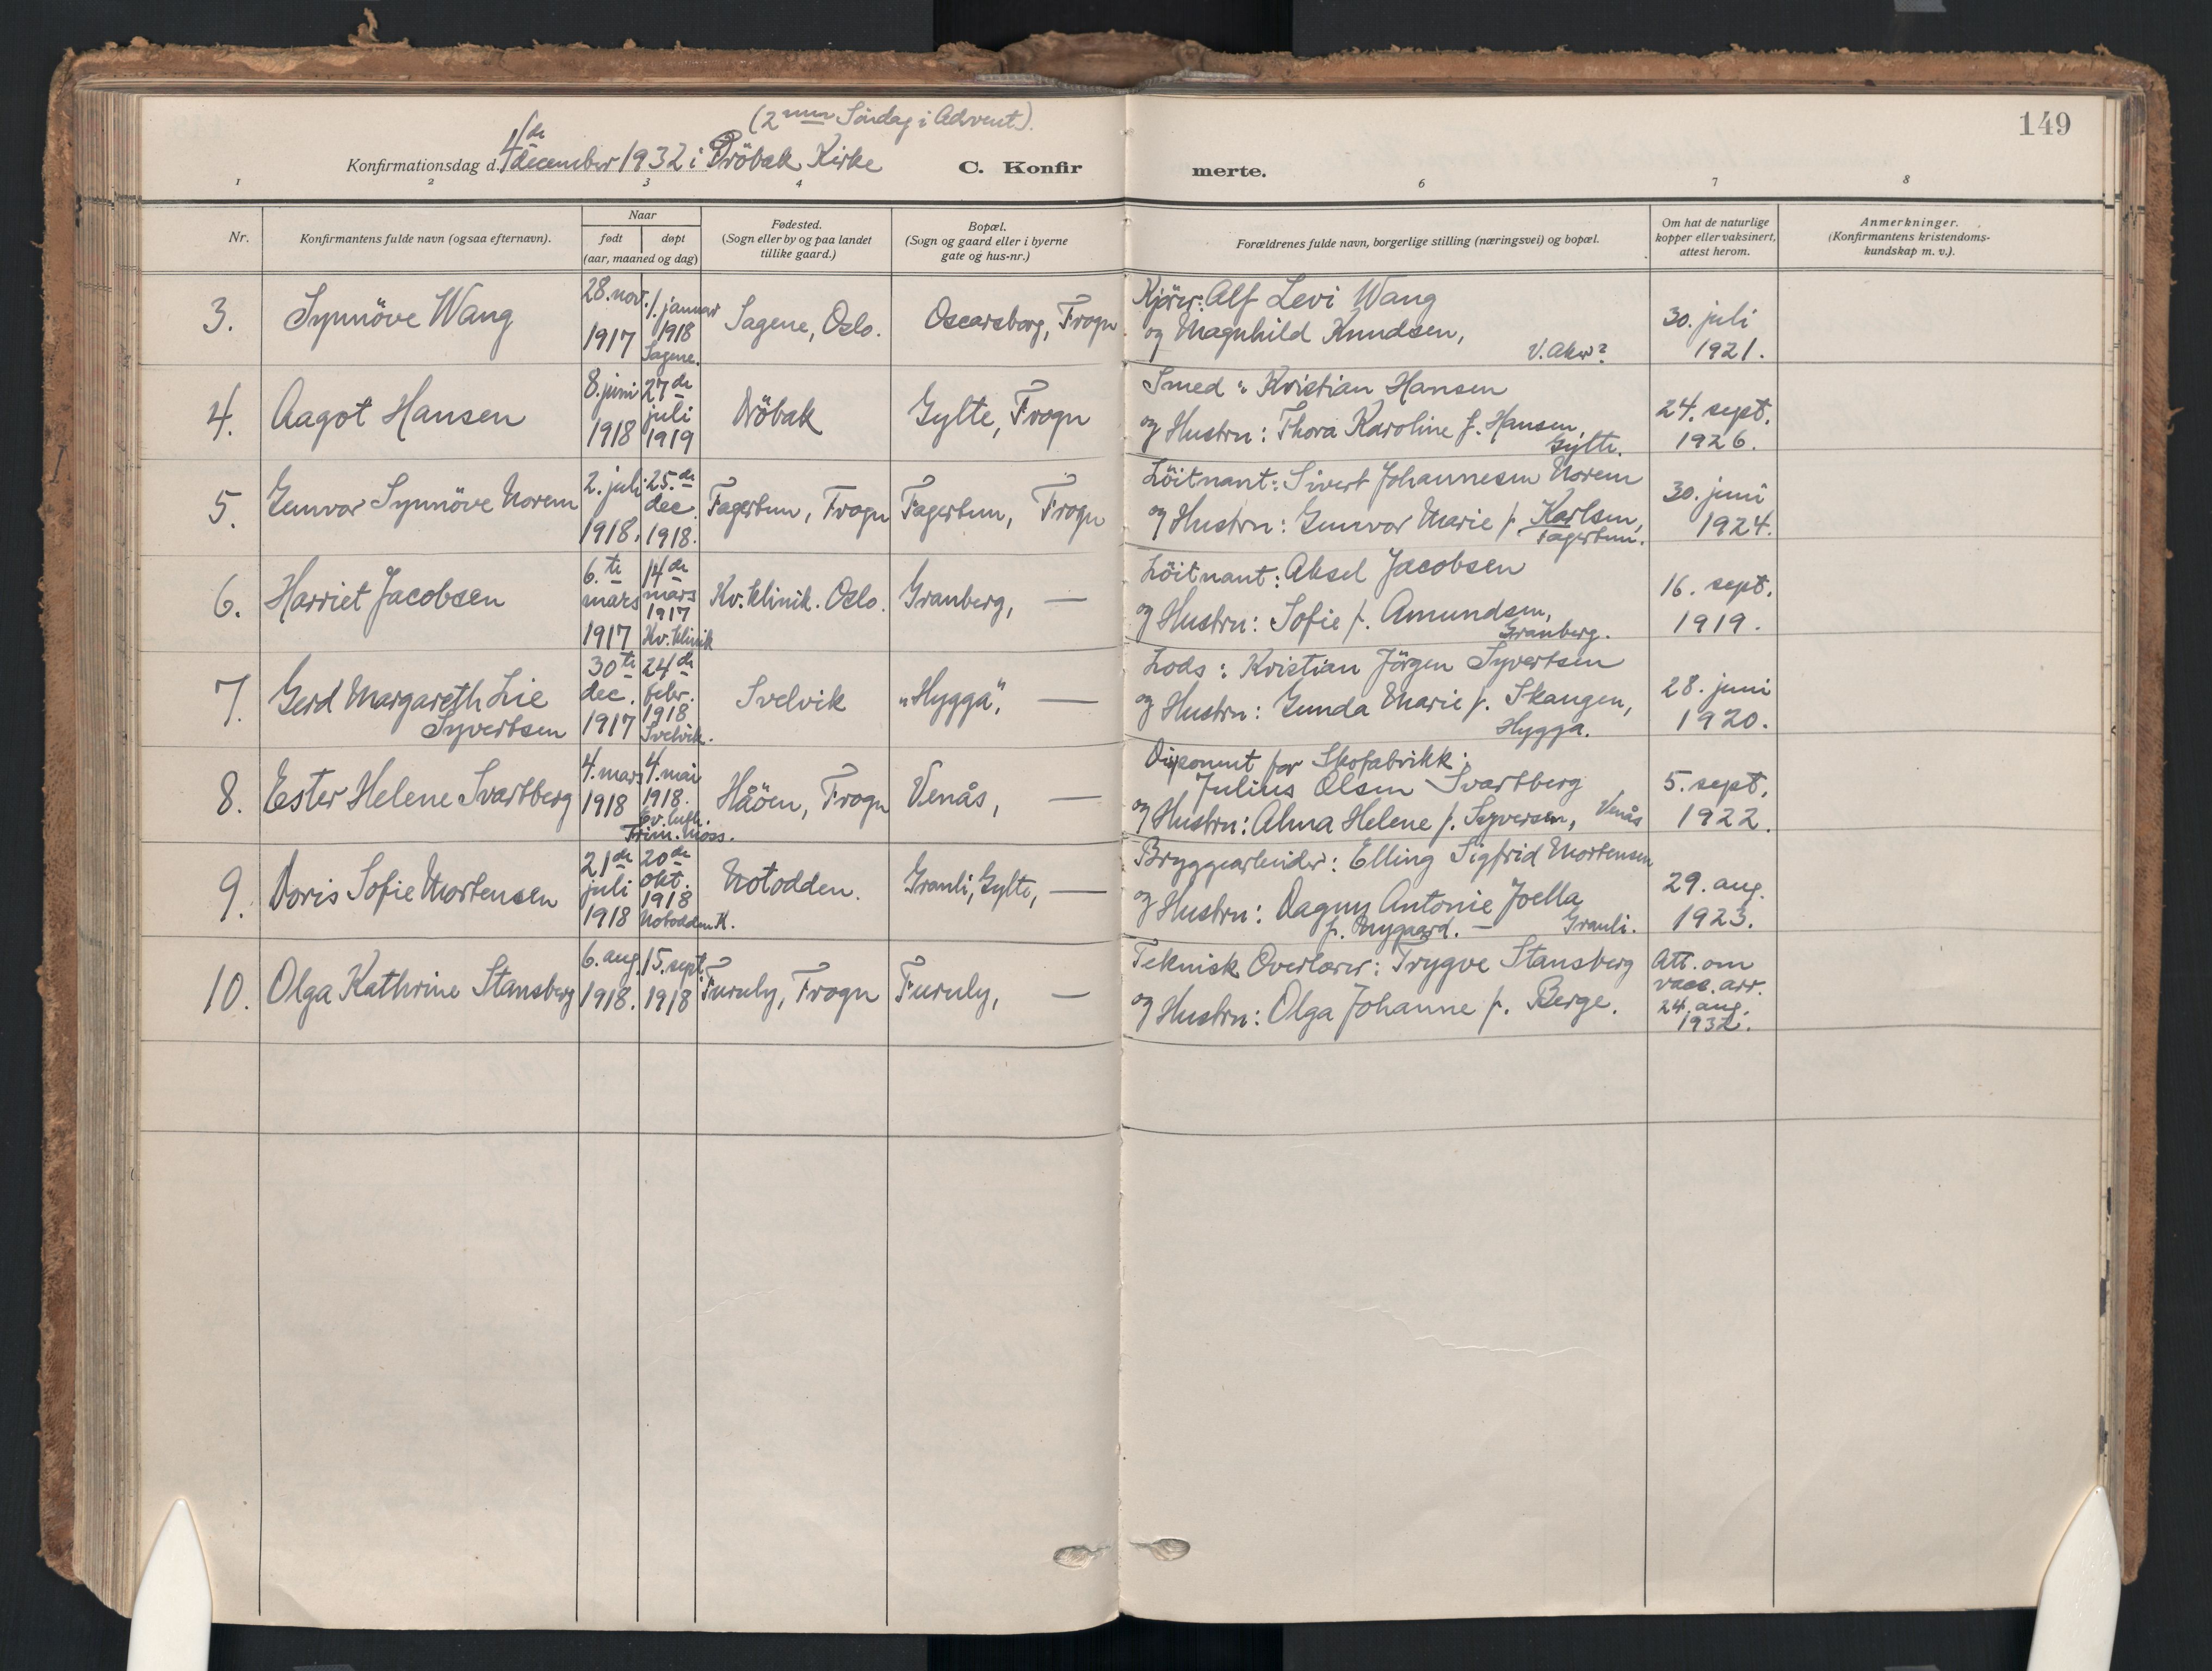 149
(2nen Söndag i Advent).
Konfirmationsdag d. 4de december 1932 i Dröbak Kirke
C. Konfirmerte.
1 2 3 4 6 7 8
Nr.
Konfirmantens fulde navn (ogsaa efternavn).
Naar
født
døpt
(aar, maaned og dag)
Fødested.
(Sogn eller by og paa landet
tillike gaard.)
Bopæl.
(Sogn og gaard eller i byerne
gate og hus-nr.)
Forældrenes fulde navn, borgerlige stilling (næringsvei) og bopæl.
Om hat de naturlige
kopper eller vaksinert,
attest herom.
Anmerkninger.
(Konfirmantens kristendoms-
kundskap m. v.).
3.
Synnöve Wang
28. nov.
1917
1. januar
1918
Sagene.
Sagene, Oslo.
Oscarsborg, Frogn
Kjörer: Alf Levi Wang
og Magnhild Knudsen,
V. Aker?
30. juli
1921.
4.
Aagot Hansen
8. juni
1918
27de
juli
1919
Dröbak
Gylte, Frogn
Smed: Kristian Hansen
og Hustru: Thora Karoline f. Hansen,
Gylte.
24. sept.
1926.
5.
Gunvor Synnöve Norem
2. juli
1918.
25.de
dec.
1918.
Fagertun, Frogn
Fagertun, Frogn
Löitnant: Sivert Johannesen Norem
og Hustru: Gunvor Marie f. Karlsen,
Fagertun.
30. juni
1924.
6.
Harriet Jacobsen
6.te
mars
1917
14de
mars
1917
Kv. klinik
Kv. klinik. Oslo.
Granberg, —
Löitnant: Aksel Jacobsen
og Hustru: Sofie f. Amundsen,
Granberg.
16. sept.
1919.
7.
Gerd Margareth Lie
Syvertsen
30te
dec.
1917
24de
febr.
1918
Svelvik.
Svelvik
"Hygga", —
Lods: Kristian Jörgen Syvertsen
og Hustru: Gunda Marie f. Skangen,
Hygga.
28. juni
1920.
8.
Ester Helene Svartberg
4. mars
1918
4. mai
1918.
Ev. luth.
Frim. Moss.
Håöen, Frogn
Venås, —
Disponent for Skofabrikk:
Julius Olsen Svartberg
og Hustru: Alma Helene f. Syversen, Venås
5. sept.
1922.
9.
Doris Sofie Mortensen
21de
juli
1918
20de
okt.
1918
Notodden K.
Notodden.
Granli, Gylte, —
Bryggearbeider: Elling Sigfrid Mortensen
og Hustru: Dagny Antonie Joella
f. Nygaard. — Granli.
29. aug.
1923.
10.
Olga Kathrine Stansberg
6. aug.
1918.
15. sept.
1918
Furuly, Frogn
Furuly, —
Teknisk Overlærer: Trygve Stansberg
og Hustru: Olga Johanne f. Berge.
Att. om
vacc. arr.
24. aug.
1932.